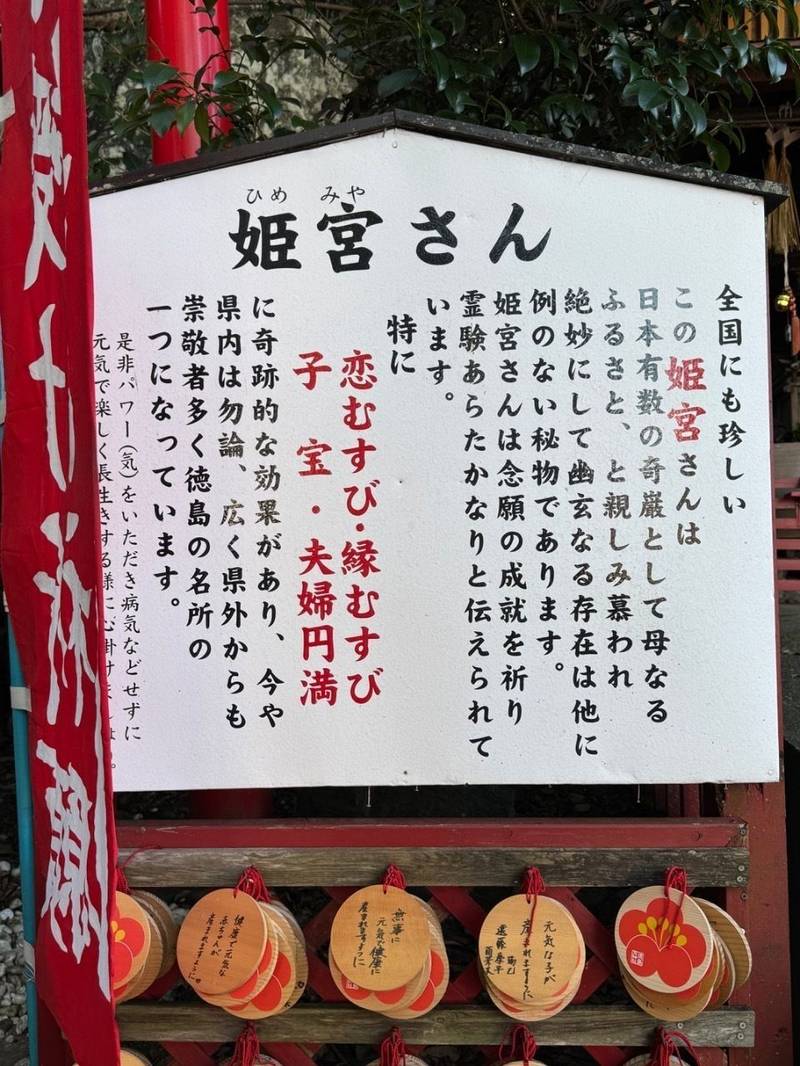 ひめ みや
姫宮さん
全国にも珍しい
この姫宮さんは
日本有数の奇巌として母なる
ふるさと、と親しみ慕われ
絶妙にして幽玄なる存在は他に
例のない秘物であります。
姫宮さんは念願の成就を祈り
霊験あらたかなりと伝えられて
います。
特に
恋むすび・縁むすび
子宝・夫婦円満
に奇跡的な効果があり、今や
県内は勿論、広く県外からも
崇敬者多く徳島の名所の
一つになっています。
是非パワー(気)をいただき病気などせずに
元気で楽しく長生きする様に心掛け
健康で元気な
赤ちゃんが
産まれますように
無事に
元気で健康に
産まれますように
元気な子が
産まれますように